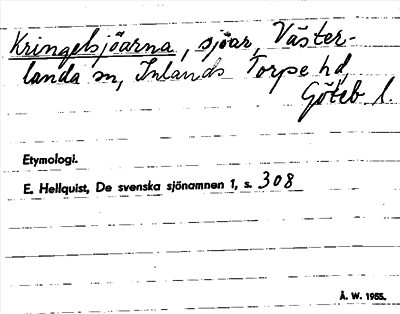 Kringelsjöarna, sjöar, Väster-
landa sn, Inlands Torpe hd,
Göteb l.
Etymologi.
E. Hellquist, De svenska sjönamnen 1, s. 308
Å. W. 1955.